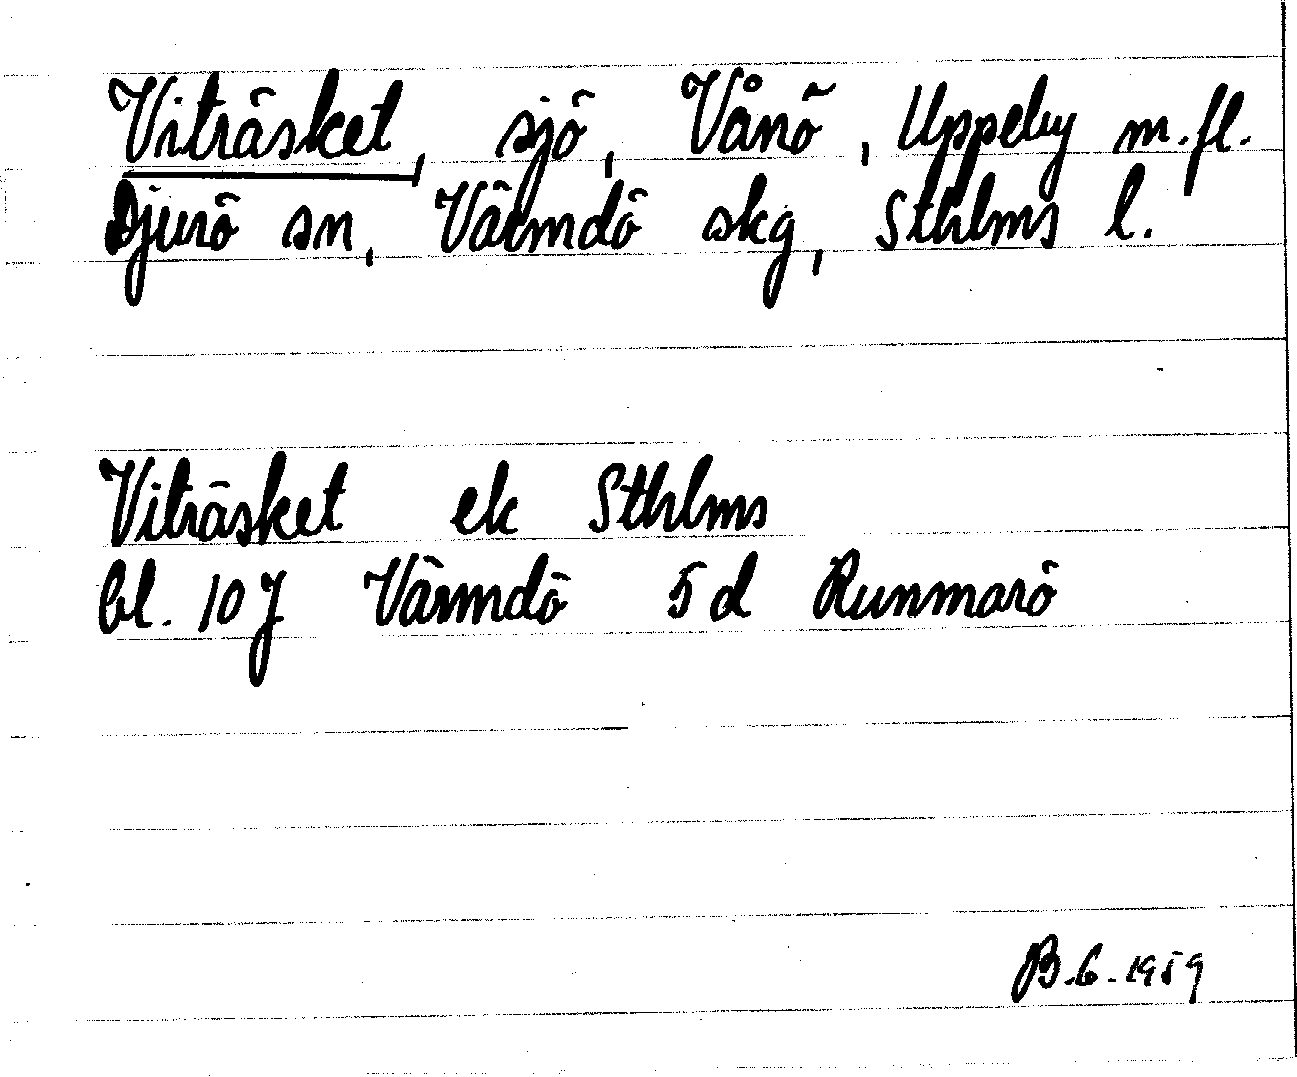 Viträsket, sjö, Vånö, Uppeby m.fl.
Djurö sn, Värmdö skg, Sthlms l.
Viträsket ek Sthlms
bl. 10J Värmdö 5d Runmarö
B.C. 1959